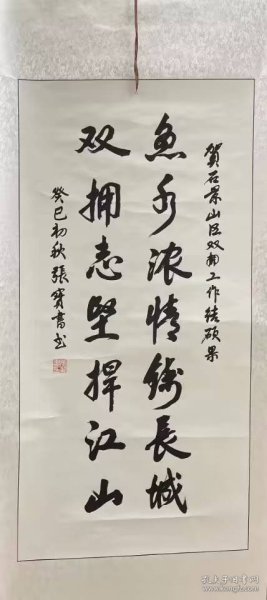 贺石景山区双拥工作结硕果
鱼水浓情铸长城
双拥志坚捍江山
癸巳初秋 張寶書书
孔夫子旧书网